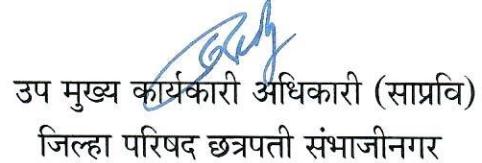 उप मुख्य कार्यकारी अधिकारी (साप्रवि)
जिल्हा परिषद छत्रपती संभाजीनगर